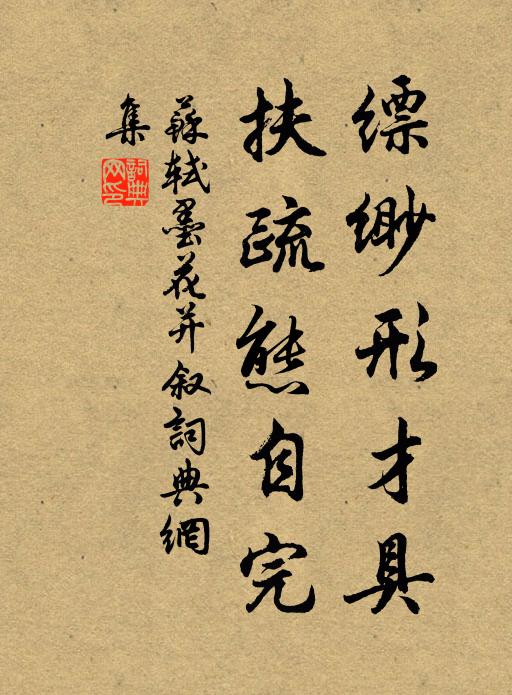 缥缈形才具
扶疏態自完
蘇軾墨花并叙詞典網
集
詞典
网印